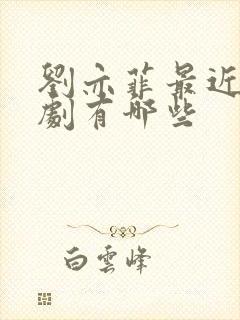 劉亦菲最近
劇有哪些
白雲峰